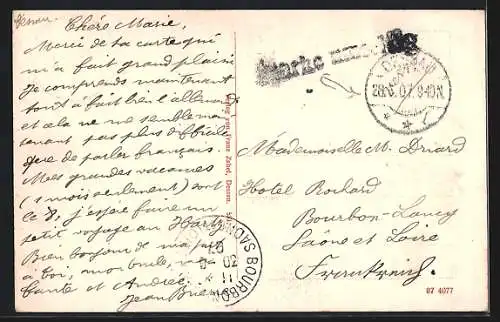 Dessau.
Chère Marie,
Merci de ta carte qui
m'a fait grand plaisir
Je comprends maintenant
tout à fait bien l'allemand
et cela ne me semble main
tenant pas plus difficile
que de parler français.
Mes grandes vacances
(1 mois seulement) sont
le 8, j'espère faire un
petit voyage au Hartz
Bien bonjour de ma part
à toi, mon oncle, ma
tante et Andrée.
Jean
Verlag von Franz Zabel, Dessau.
Marke
DESSAU
28.6.07. 9-10N.
* 1
Mademoiselle M. Driard
Hotel Rochard
Bourbon-Lancy
Saône et Loire
Frankreich.
BOURBON
11
30
07
87 4077